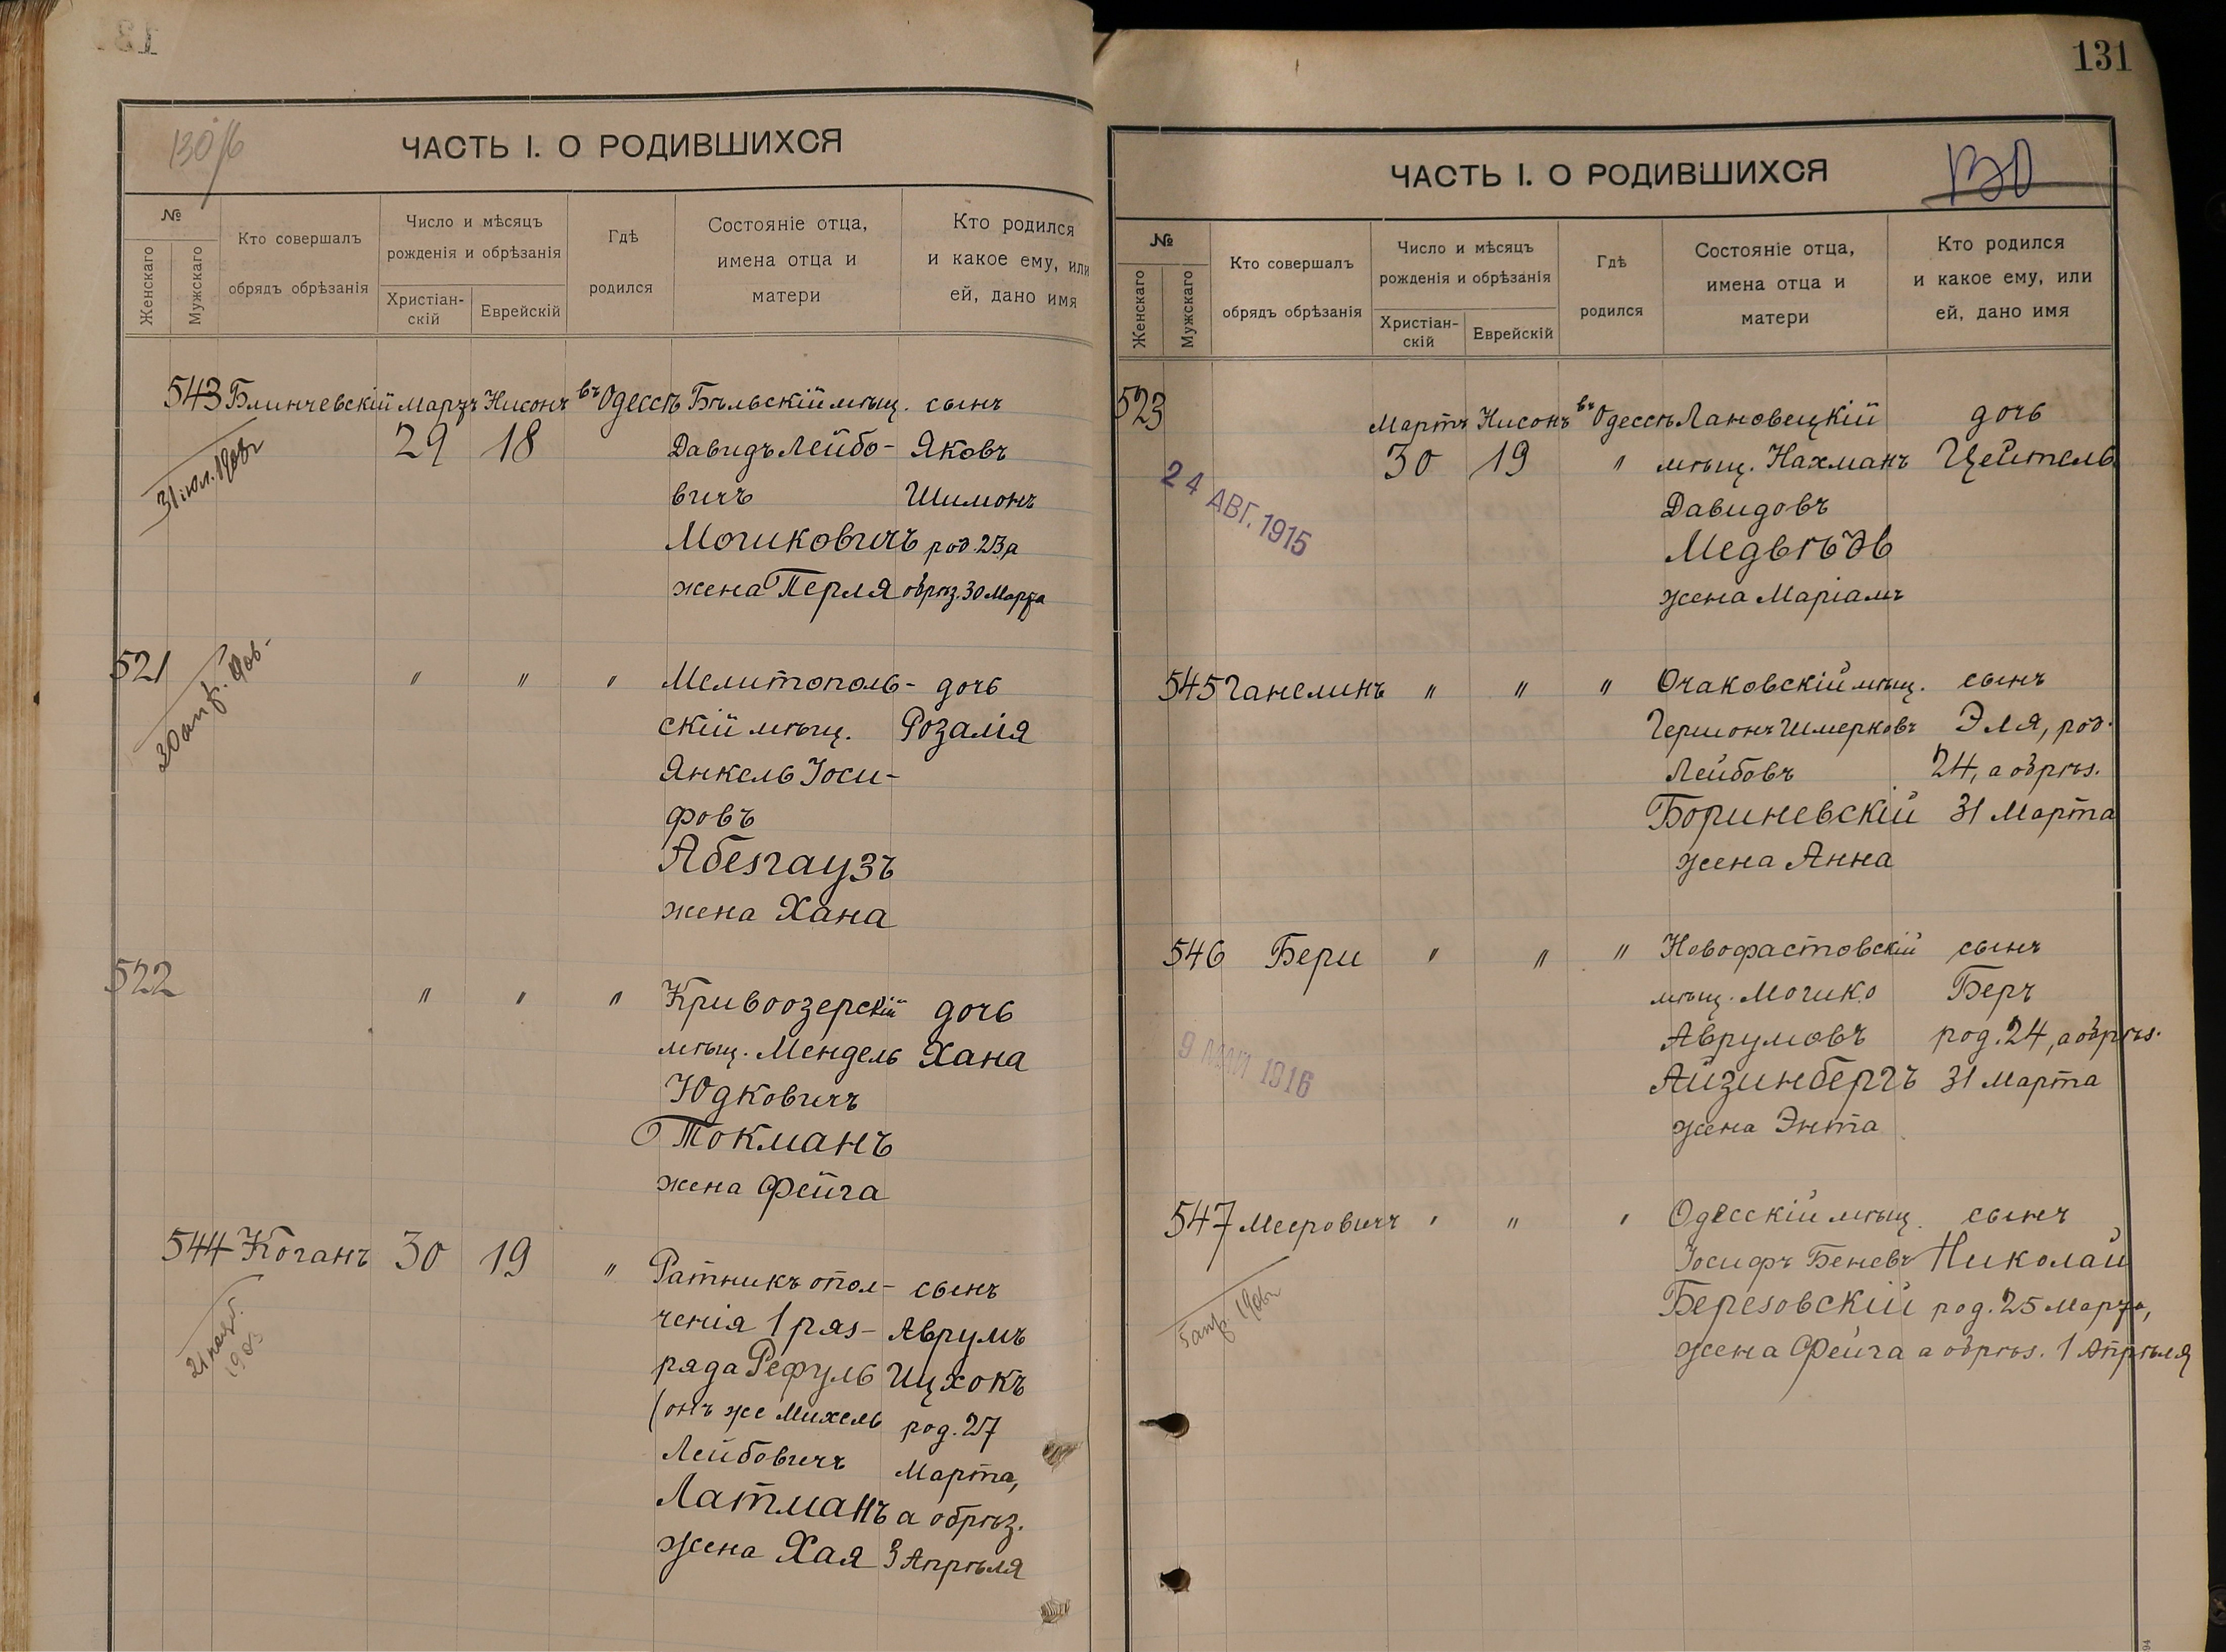 130/б
ЧАСТЬ I. О РОДИВШИХСЯ
№
Женскаго
Мужскаго
Кто совершалъ
обрядъ обрѣзанія
Число и мѣсяцъ
рожденія и обрѣзанія
Христіан-
скій
Еврейскій
Гдѣ
родился
Состояніе отца,
имена отца и
матери
Кто родился
и какое ему, или
ей, дано имя
543 Блинчевскій Мартъ Нисонъ въ Одессѣ Бѣльскій мѣщ. сынъ
29 18 Давидъ Лейбо- Яковъ
вичъ Шимонъ
Мошковичъ род. 23, а
жена Перля обрѣз. 30 Марта
31 іюл. 1908г
521 " " " Мелитополь- дочь
скій мѣщ. Розалія
Янкель Іоси-
фовъ
Абезгаузъ
жена Хана
522 " " " Кривоозерскій дочь
мѣщ. Мендель Хана
Юдковичъ
Токманъ
жена Фейга
544 Коганъ 30 19 " Ратникъ опол- сынъ
ченія 1 раз- Аврумъ
ряда Рефуль Ицхокъ
(онъ же Михель род. 27
Лейбовичъ Марта,
Латманъ а обрѣз.
жена Хая 3 Апрѣля
131
ЧАСТЬ I. О РОДИВШИХСЯ
130
№
Женскаго
Мужскаго
Кто совершалъ
обрядъ обрѣзанія
Число и мѣсяцъ
рожденія и обрѣзанія
Христіан-
скій
Еврейскій
Гдѣ
родился
Состояніе отца,
имена отца и
матери
Кто родился
и какое ему, или
ей, дано имя
523 Мартъ Нисонъ въ Одессѣ Лановецкій дочь
30 19 " мѣщ. Нахманъ Цейтель
Давидовъ
Медвѣдь
жена Маріамъ
24 АВГ. 1915
545 Ганелинъ " " " Очаковскій мѣщ. сынъ
Гершонъ Шмерковъ Эля, род.
Лейбовъ 24, а обрѣз.
Бориневскій 31 Марта
жена Анна
546 Бери " " " Новофастовскій сынъ
мѣщ. Мошко Беръ
Аврумовъ род. 24, а обрѣз.
Айзинбергъ 31 Марта
жена Энта
9 МАИ 1916
547 Мееровичъ " " " Одесскій мѣщ. сынъ
Іосифъ Беневъ Николай
Березовскій род. 25 Марта,
жена Фейга а обрѣз. 1 Апрѣля
5 апр. 1906г